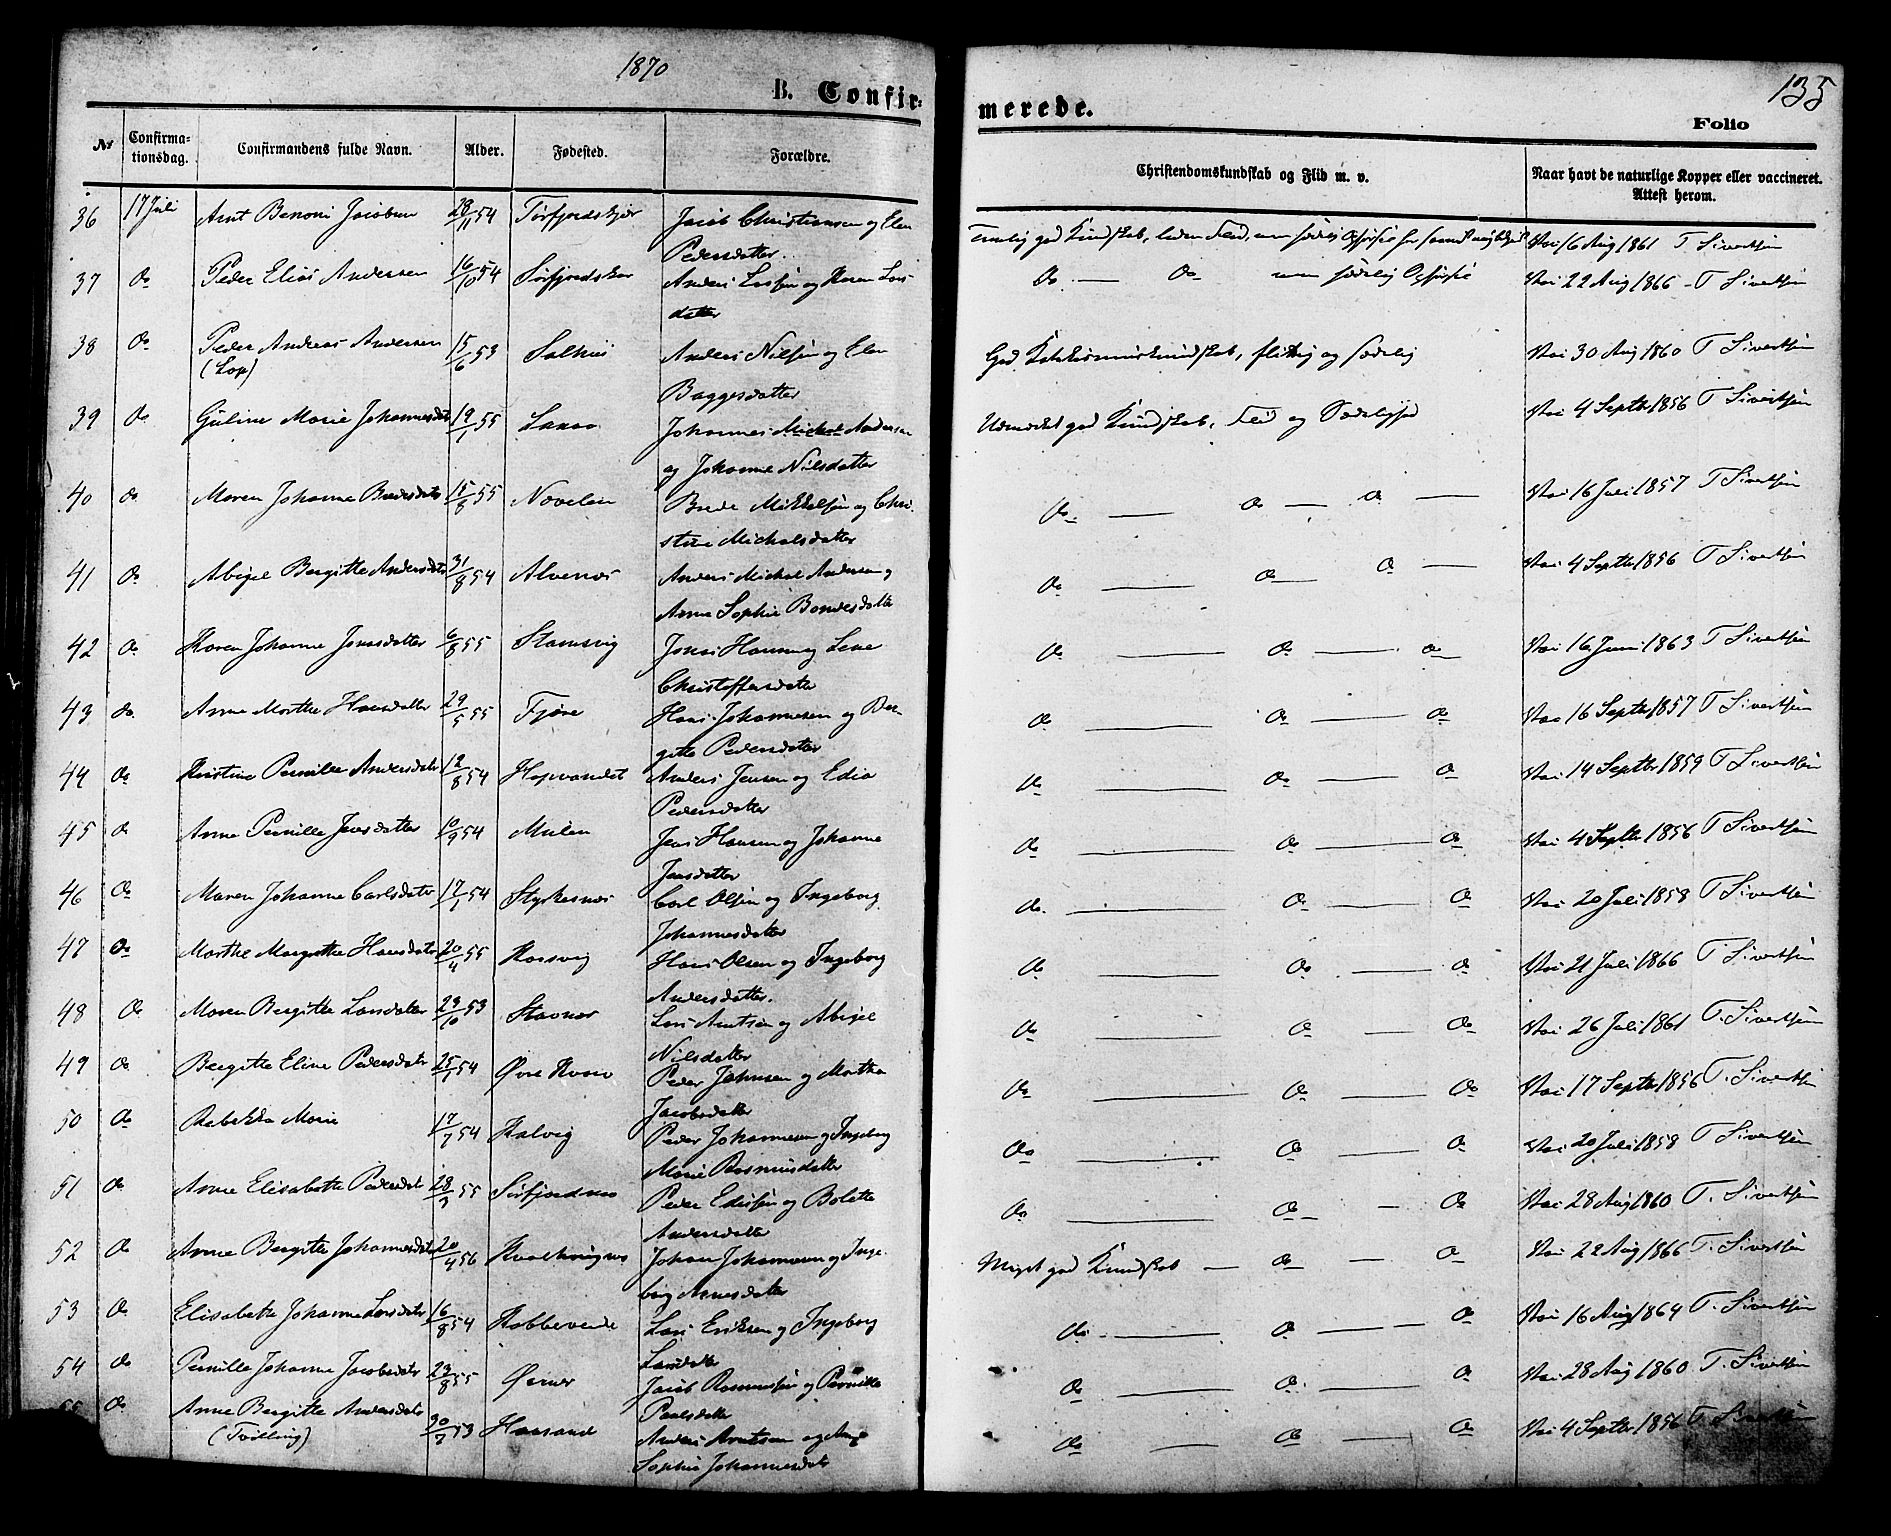 1870
135
B. Confir=
merede.
Folio
No
Confirma-
tionsdag.
Confirmandens fulde Navn.
Alder.
Fødested.
Forældre.
Christendomskundskab og Flid m. v.
Naar havt de naturlige Kopper eller vaccineret.
Attest herom.
36 17 Juli Arnt Benoni Jacobsen 28/11 54 Jacob Christiansen og Elen
Pedersdatter.
Vac 16 Aug 1861 T Sivertsen
37 do Peder Elias Andersen 16/10 54 Anders Larsen og Karen Lars
datter
do — do
Vac 22 Aug 1866 - T Sivertsen
38 do Peder Andreas Andersen 15/6 53 Anders Nilsen og Elen
(Lap)
Baggesdatter
flittig og sædelig
Vac 30 Aug 1860 T Sivertsen
39 do Guline Marie Johannesdatr 19/1 55 Johannes Michal Andersen
og Johanne Nilsdatter
Udmærket god Kundskab, Flid og Sædelighed
Vac 4 Septbr 1856 T Sivertsen
40 do Maren Johanne Bredesdatr 15/8 55 Brede Mikkelsen og Chri-
stine Michalsdatter
do — do — do —
Vac 16 Juli 1857 T Sivertsen
41 do Abigel Bergitte Andersdatr 31/8 54 Alvenes Anders Michal Andersen og
Anne Sophie
do — do — do —
Vac 4 Septbr 1856 T Sivertsen
42 do Karen Johanne Jonasdatter 6/8 55 Stamsvig Jonas Hansen og Lene
Christoffersdatter
do — do — do
Vac 16 Juni 1863 T Sivertsen
43 do Anne Marthe Hansdatter 29/5 55 Fjære Hans Johannesen og Ber-
gitte Pedersdatter
do — do — do
Vac 16 Septbr 1857 T Sivertsen
44 do Kristine Pernille Andersdatr 12/8 54 Hopvandet Anders Jensen og
Pedersdatter
do — do — do
Vac 14 Septbr 1859 T Sivertsen
45 do Anne Pernille Jensdatter 10/9 54 Mulen Jens Hansen og Johanne
Jensdatter
do — do — do
Vac 4 Septbr 1856 T Sivertsen
46 do Maren Johanne Carlsdatr 17/1 54 Styrkesnes Carl Olsen og Ingeborg
Johannesdatter
do. — do — do
Vac 20 Juli 1858 T Sivertsen
47 do Marthe Margrethe Hansdatr 20/4 55 Korsvig Hans Olsen og Ingeborg
Andersdatter.
do — do — do
Vac 21 Juli 1866 T. Sivertsen
48 do Maren Bergitte Larsdatter 23/10 53 Stavnes Lars Arntsen og Abigel
Nilsdatter
do — do — do
Vac 26 Juli 1861 T. Sivertsen
49 do Bergitte Eline Pedersdatr 25/1 54 Øvre Peder Johnsen og Martha
Jacobsdatter
do — do — do
Vac 17 Septbr 1856 T. Sivertsen
50 do Rebekka Marie 17/7 54 Kalvig Peder Johannesen og Ingeborg
Marie Rasmusdatter
do — do — do
Vac 20 Juli 1858 T Sivertsen
51 do Anne Elisabeth Pedersdat 28/3 55 Peder og Bolette
Andersdatter
do — do — do
Vac 28 Aug 1860 T. Sivertsen
52 do Anne Bergitte Johannesdatr 20/4 56 Johan Johannesen og Inge-
borg Arnesdatter
Meget god Kundskab — do — do
Vac 22 Aug 1866 T. Sivertsen
53 do Elisabeth Johanne Larsdatr 16/8 54 Lars Eriksen og Ingeborg
Larsdatter
do. — do — do
Vac 16 Aug 1864 T. Sivertsen
54 do Pernille Johanne Jacobsdatr 23/8 55 Øernes Jacob Rasmussen og Pernille
Paulsdatter
do — do — do
Vac 28 Aug 1860 T. Sivertsen
55 do Anne Bergitte Andersdatr 30/7 53 Haasand Anders Arntsen og
(Tvilling)
Sophie Johannesdatr
do — do — do
Vac 4 Septbr 1856 T. Sivertsen